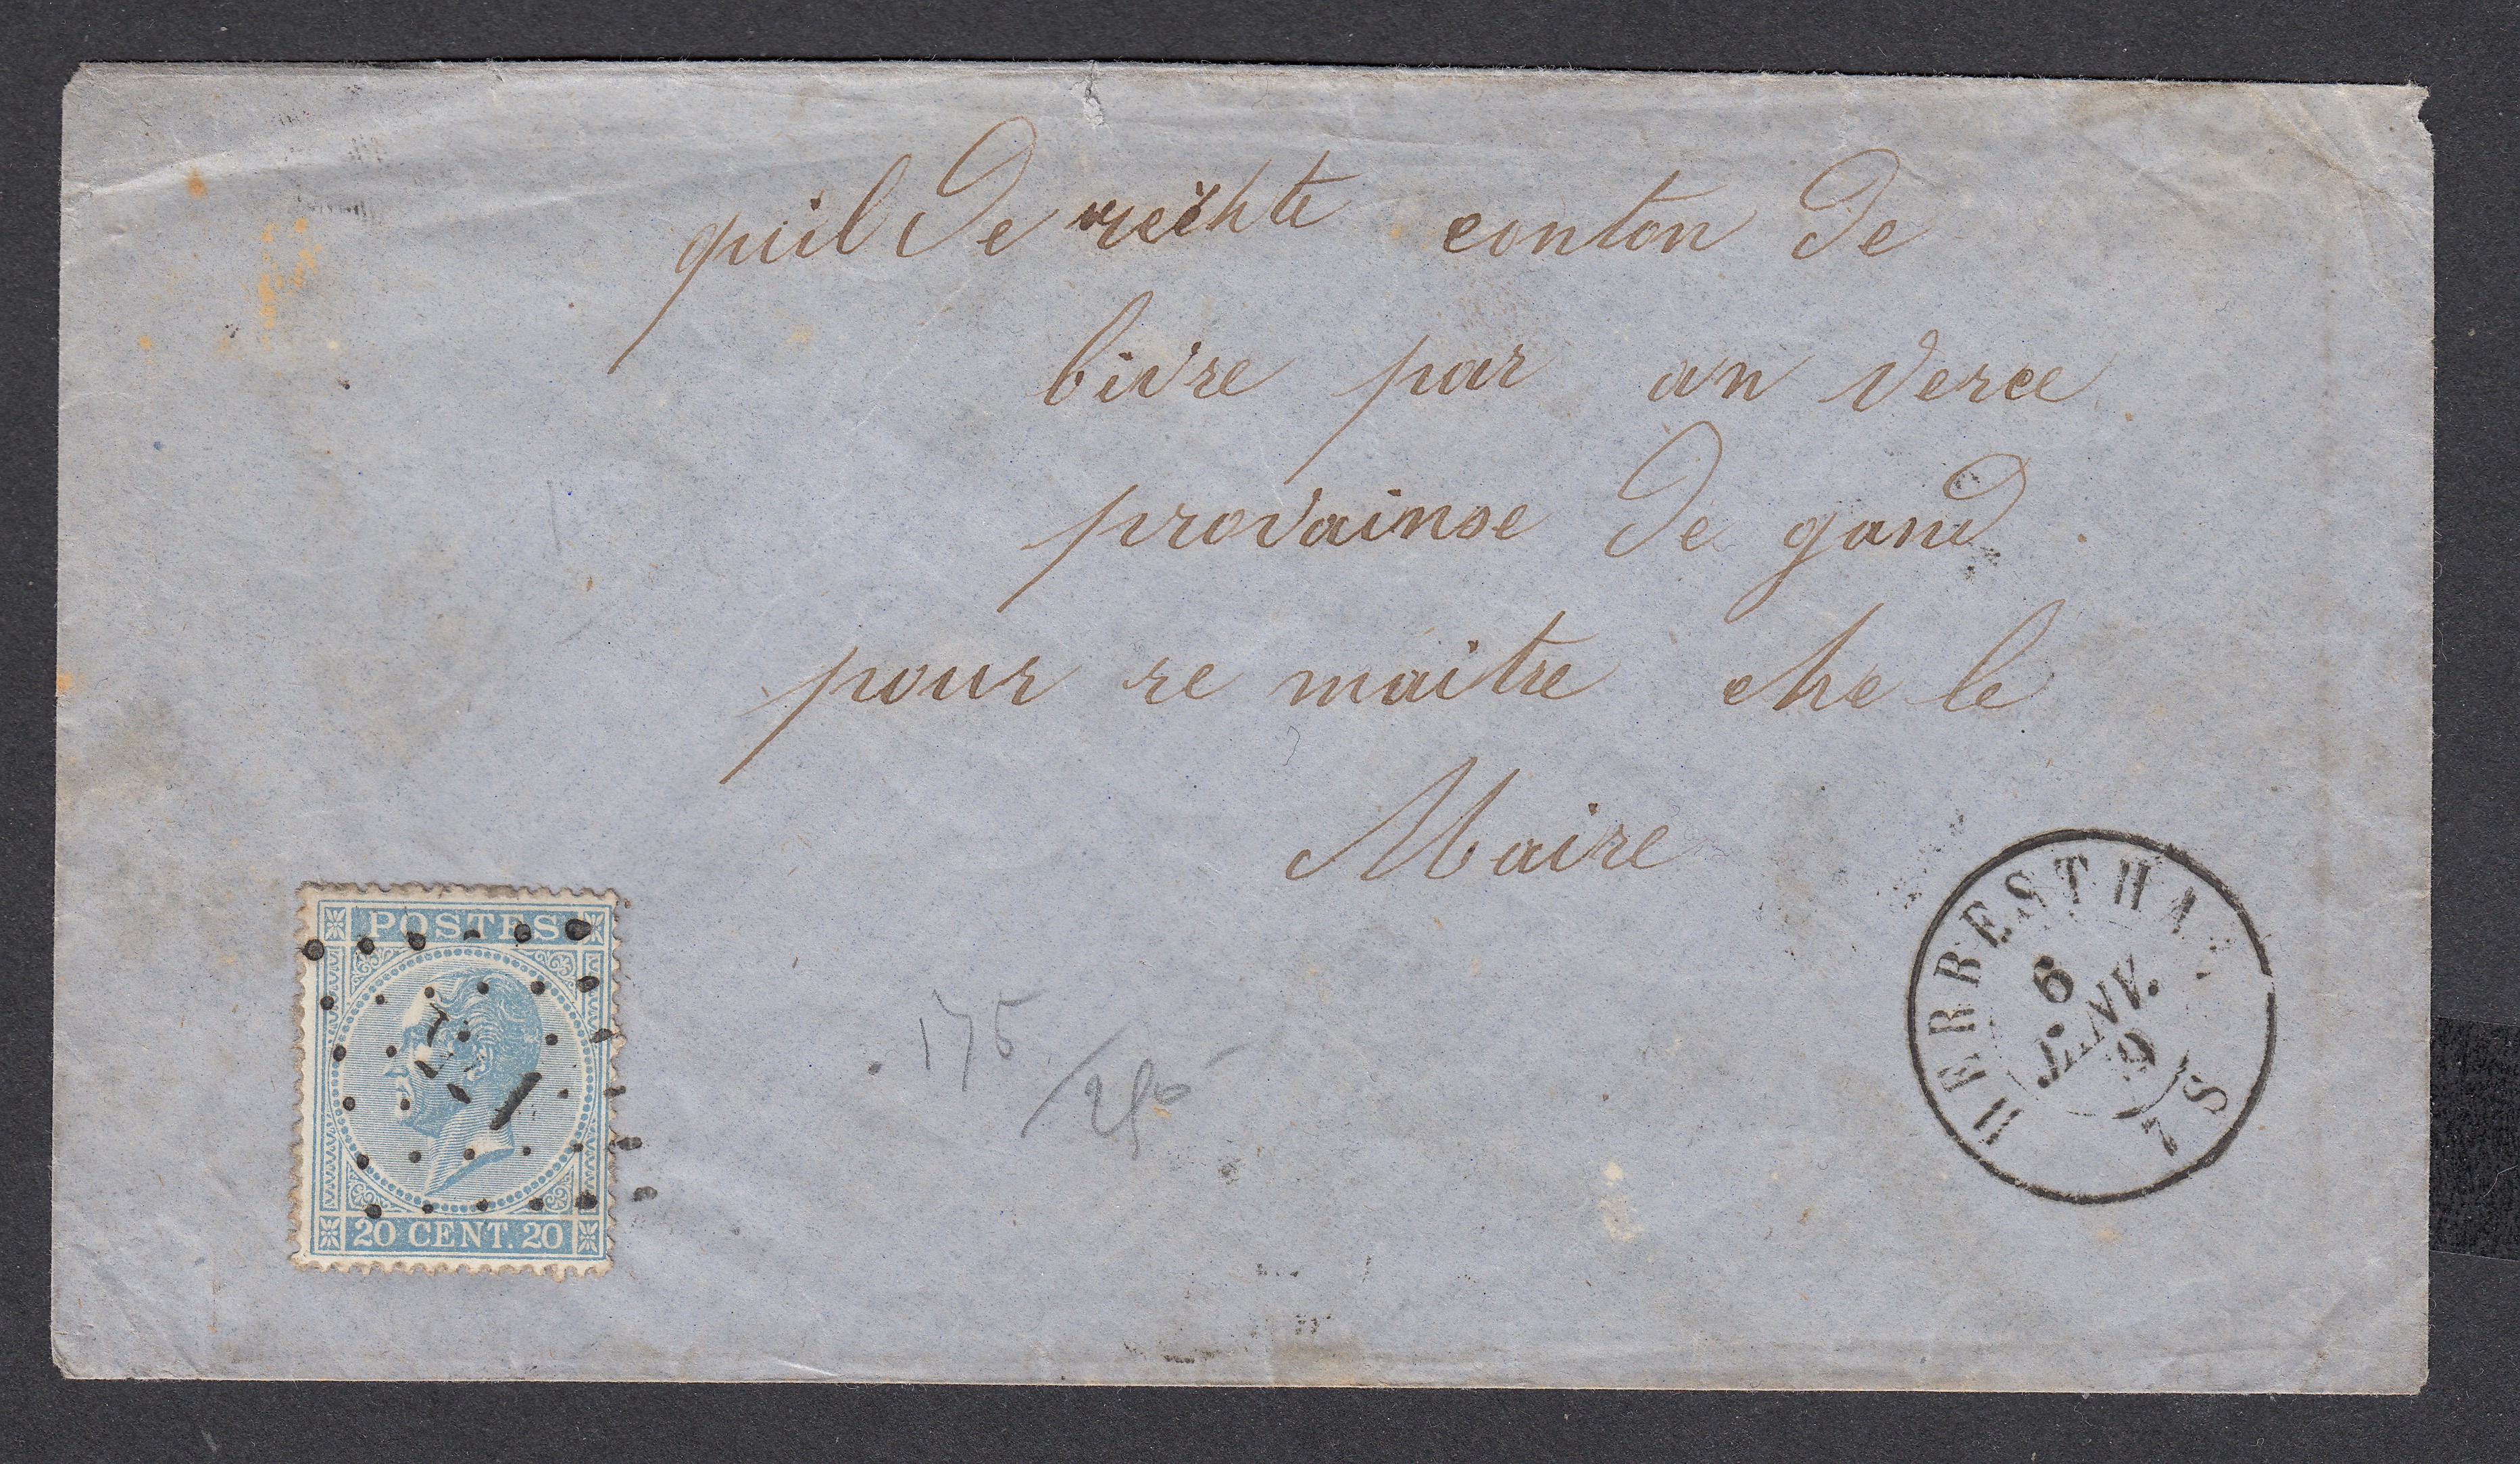 quil de rechte conton de
bivre par an verce
provainse de gand
pour re maitre che le
Maire
POSTES
20 CENT. 20
HERBESTHAL
6
JANV.
7 S
175
/250